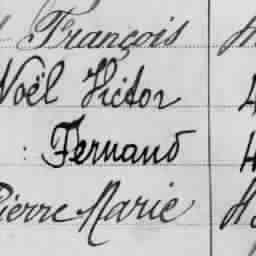 François
Noël Victor
Fernand
Pierre Marie